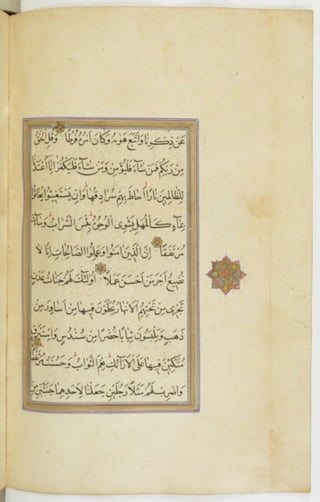 عَنْ ذِكْرِنَا وَاتَّبَعَ هَوٰيهُ وَكَانَ اَمْرُهُ فُرُطًا وَقُلِ الْحَقُّ
مِنْ رَبِّكُمْ فَمَنْ شَآءَ فَلْيُؤْمِنْ وَمَنْ شَآءَ فَلْيَكْفُرْ اِنَّا اَعْتَدْنَا
لِلظَّالِمِينَ نَارًا اَحَاطَ بِهِمْ سُرَادِقُهَا وَاِنْ يَسْتَغِيثُوا يُغَاثُوا
بِمَآءٍ كَالْمُهْلِ يَشْوِى الْوُجُوهَ بِئْسَ الشَّرَابُ وَسَآءَتْ
مُرْتَفَقًا اِنَّ الَّذِينَ اٰمَنُوا وَعَمِلُوا الصَّالِحَاتِ اِنَّا لَا
نُضِيعُ اَجْرَ مَنْ اَحْسَنَ عَمَلًا اُولٰئِكَ لَهُمْ جَنَّاتُ عَدْنٍ
تَجْرِى مِنْ تَحْتِهِمُ الْاَنْهَارُ يُحَلَّوْنَ فِيهَا مِنْ اَسَاوِرَ مِنْ
ذَهَبٍ وَيَلْبَسُونَ ثِيَابًا خُضْرًا مِنْ سُنْدُسٍ وَاِسْتَبْرَقٍ
مُتَّكِئِينَ فِيهَا عَلَى الْاَرَآئِكِ نِعْمَ الثَّوَابُ وَحَسُنَتْ مُرْتَفَقًا
وَاضْرِبْ لَهُمْ مَثَلًا رَجُلَيْنِ جَعَلْنَا لِاَحَدِهِمَا جَنَّتَيْنِ مِنْ